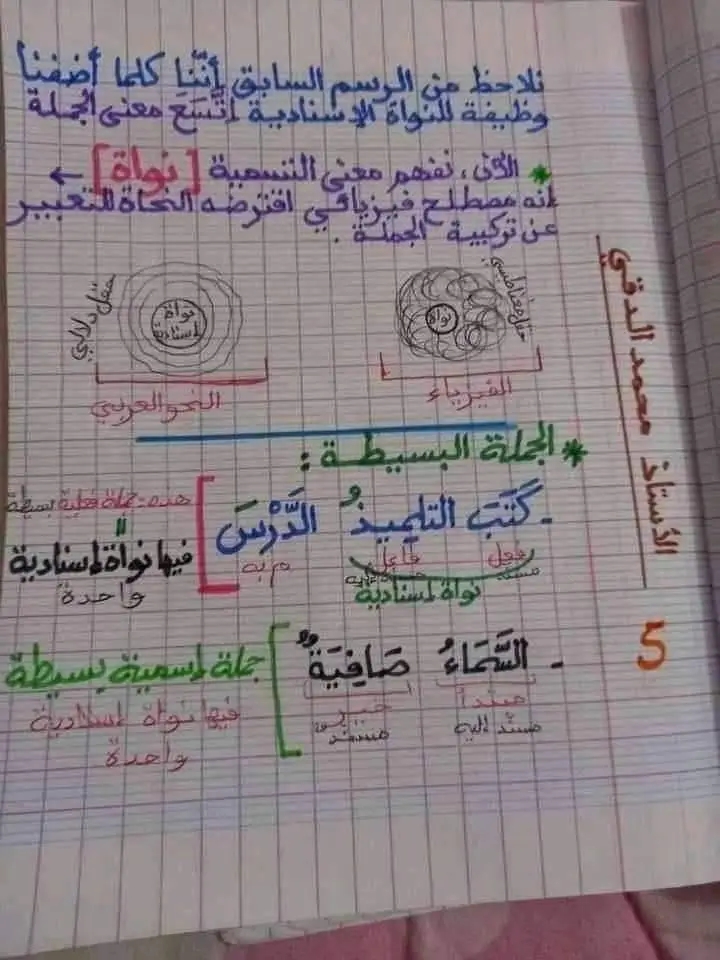 نلاحظ من الرسم السابق أنَّنا كلما أضفنا
وظيفة للنواة الإسنادية اتَّسَعَ معنى الجملة
* الآن، نفهم معنى التسمية [نواة] ←
إنه مصطلح فيزيائي اقترضه النحاة للتعبير
عن تركيبة الجملة.
حقل مغناطيسي
نواة
الفيزياء
حقل دلالي
نواة
إسنادية
النحو العربي
* الجملة البسيطة:
- كَتَبَ التلميذُ الدَّرْسَ
فعل فاعل م به
مسند مسند إليه
نواة إسنادية
هذه جملة فعلية بسيطة
فيها نواة إسنادية
واحدة
- السَّمَاءُ صَافِيَةٌ
مبتدأ خبر
مسند إليه مسند
جملة إسمية بسيطة
فيها نواة إسنادية
واحدة
الأستاذ محمد الدقي
5